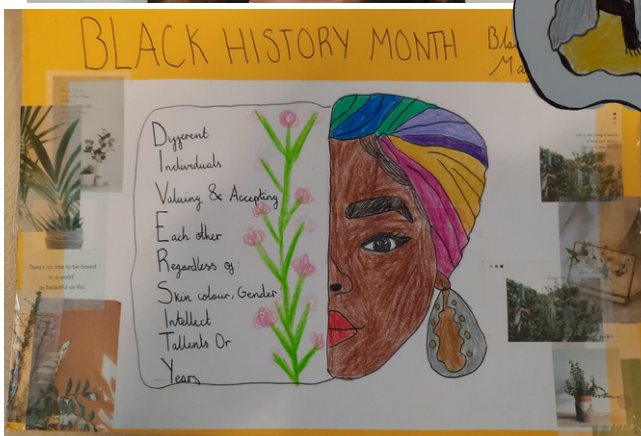 BLACK HISTORY MONTH
Different
Individuals
Valuing & Accepting
Each other
Regardless of:
Skin colour, Gender
Intellect
Tallents Or
Years
There's no time to be bored
in a world
as beautiful as this.